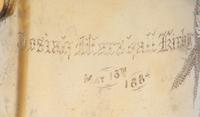 Josiah Marshall Kirby
May 13th
1884